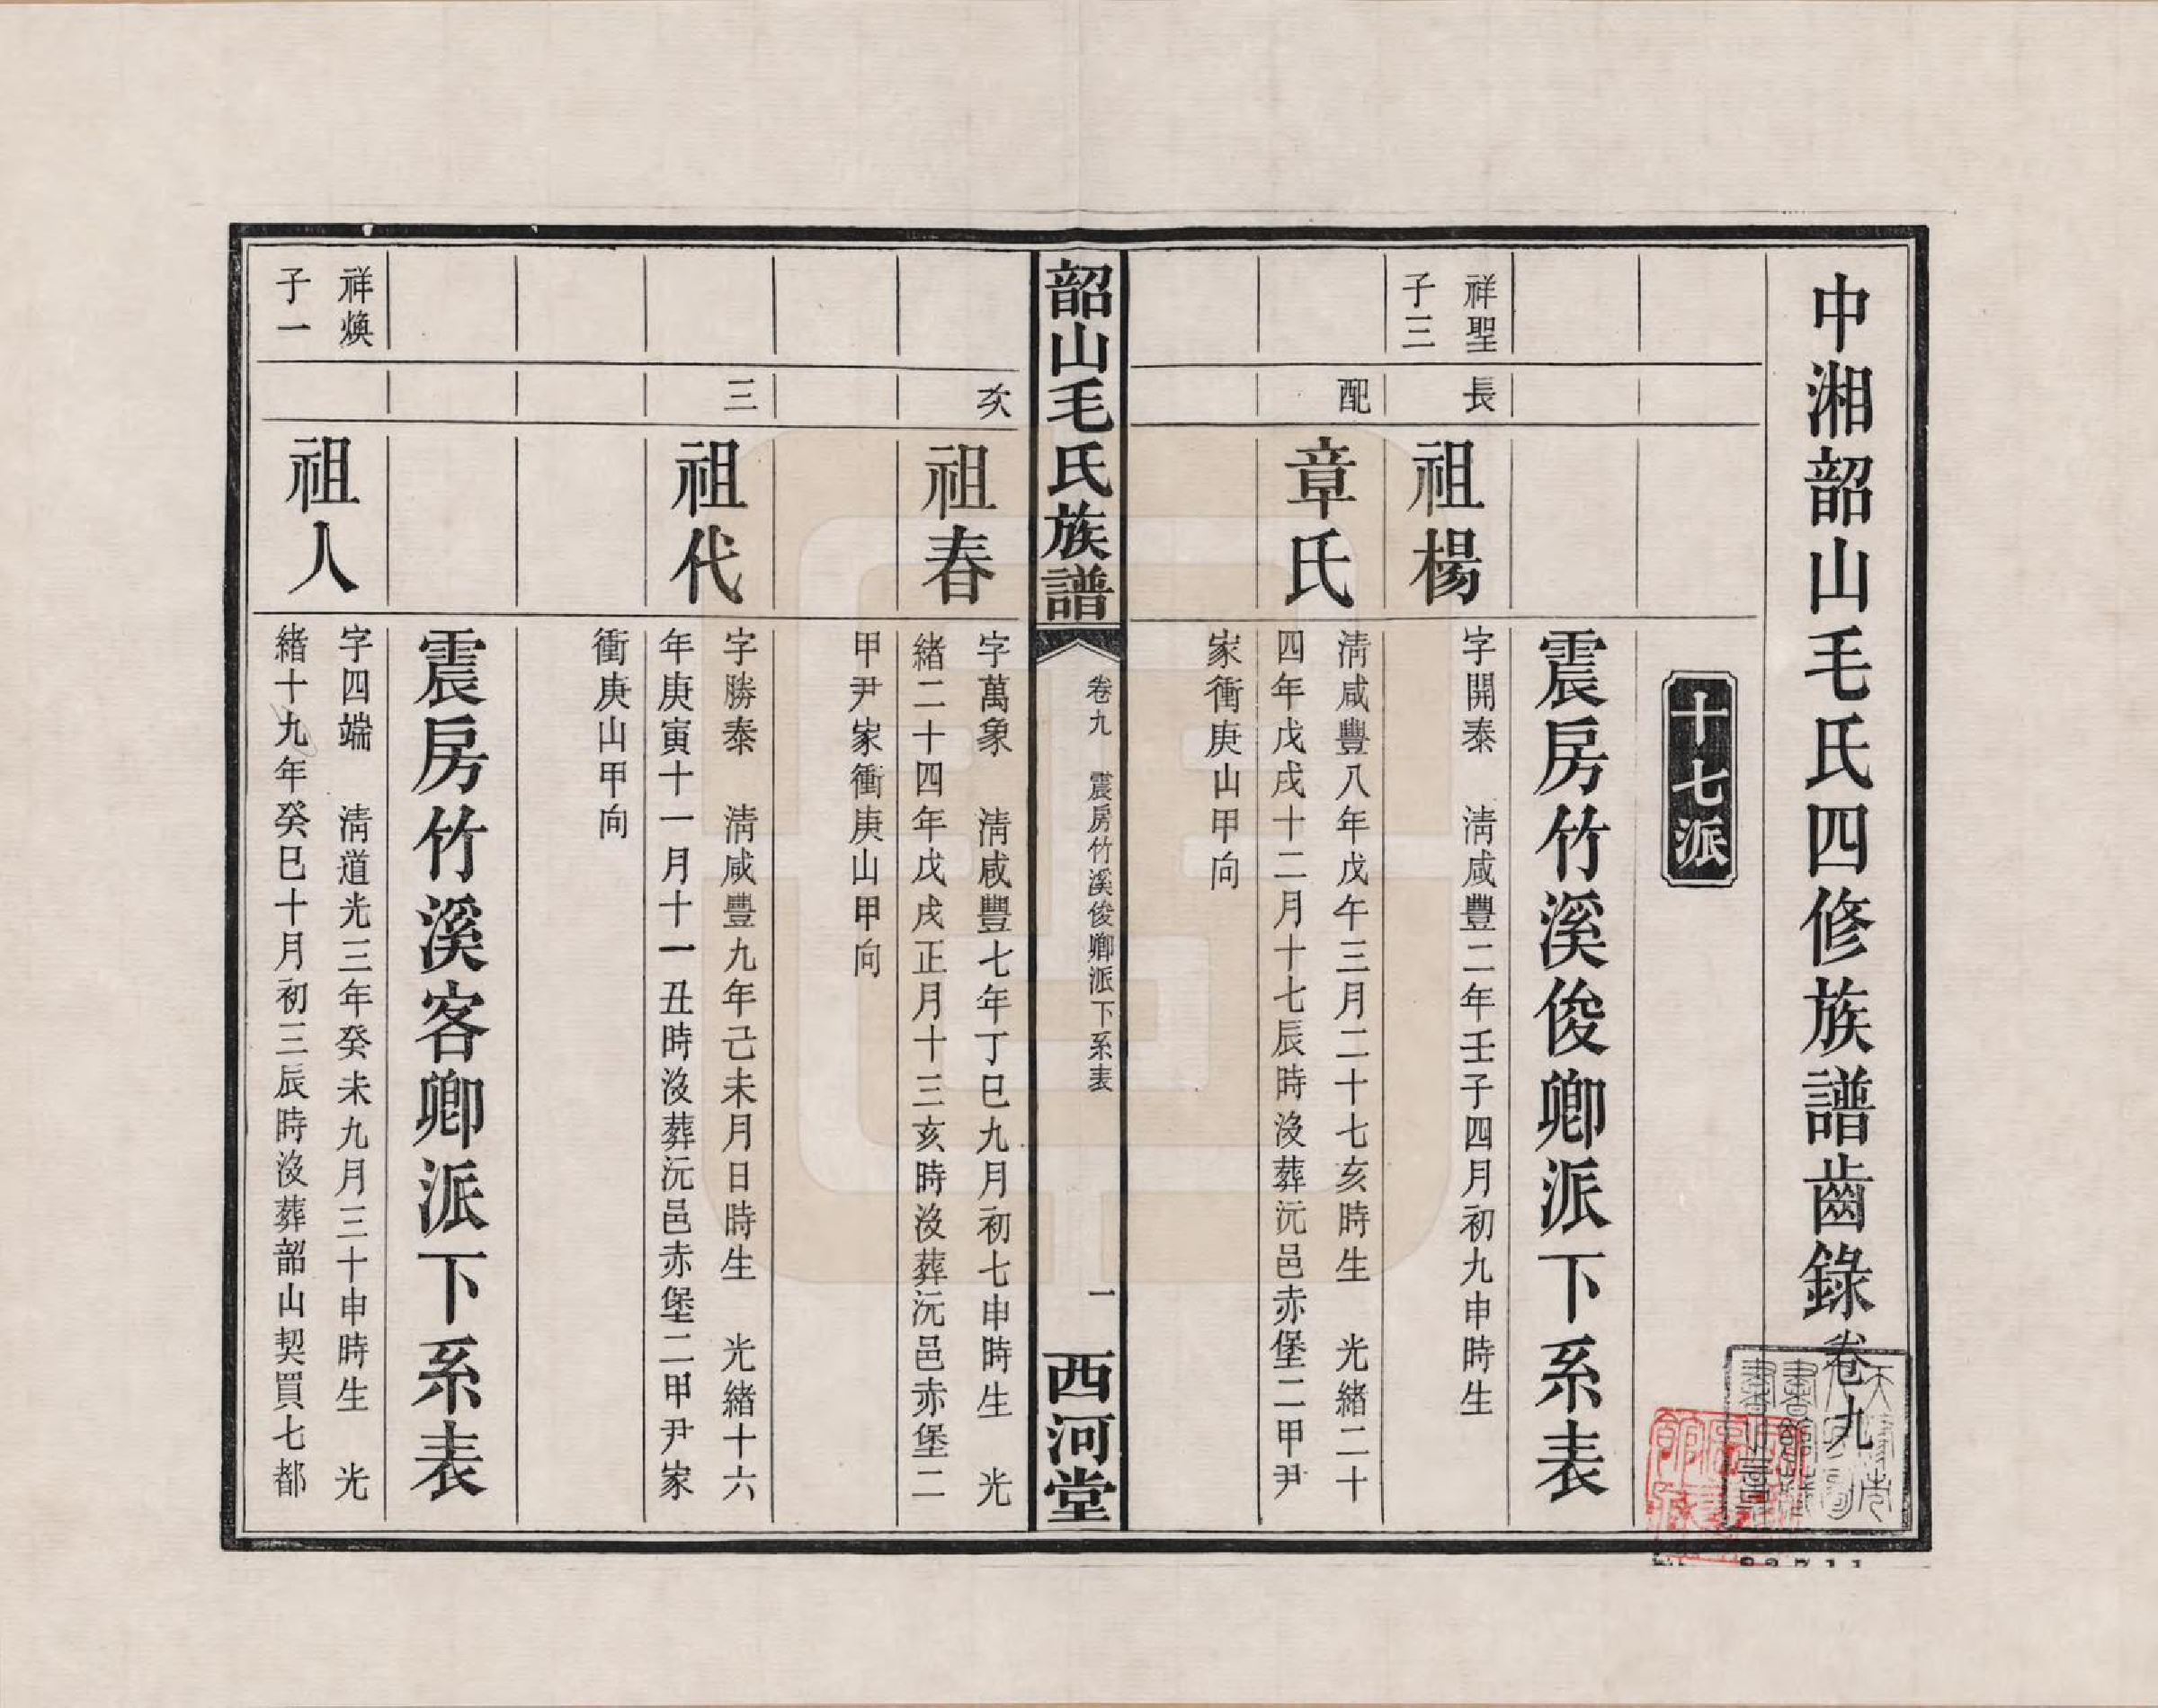 中湘韶山毛氏四修族譜齒錄卷九
十七派
震房竹溪俊卿派下系表
祥聖
子三
長
祖楊
字開泰　淸咸豐二年壬子四月初九申時生
配
章氏
淸咸豐八年戊午三月二十七亥時生　光緒二十
四年戊戌十二月十七辰時沒葬沅邑赤堡二甲尹
家衝庚山甲向
韶山毛氏族譜
卷九　震房竹溪俊卿派下系表
一
西河堂
次
祖春
字萬象　淸咸豐七年丁巳九月初七申時生　光
緒二十四年戊戌正月十三亥時沒葬沅邑赤堡二
甲尹家衝庚山甲向
三
祖代
字勝泰　淸咸豐九年己未月日時生　光緒十六
年庚寅十一月十一丑時沒葬沅邑赤堡二甲尹家
衝庚山甲向
震房竹溪客卿派下系表
祥煥
子一
祖人
字四端　淸道光三年癸未九月三十申時生　光
緒十九年癸巳十月初三辰時沒葬韶山契買七都